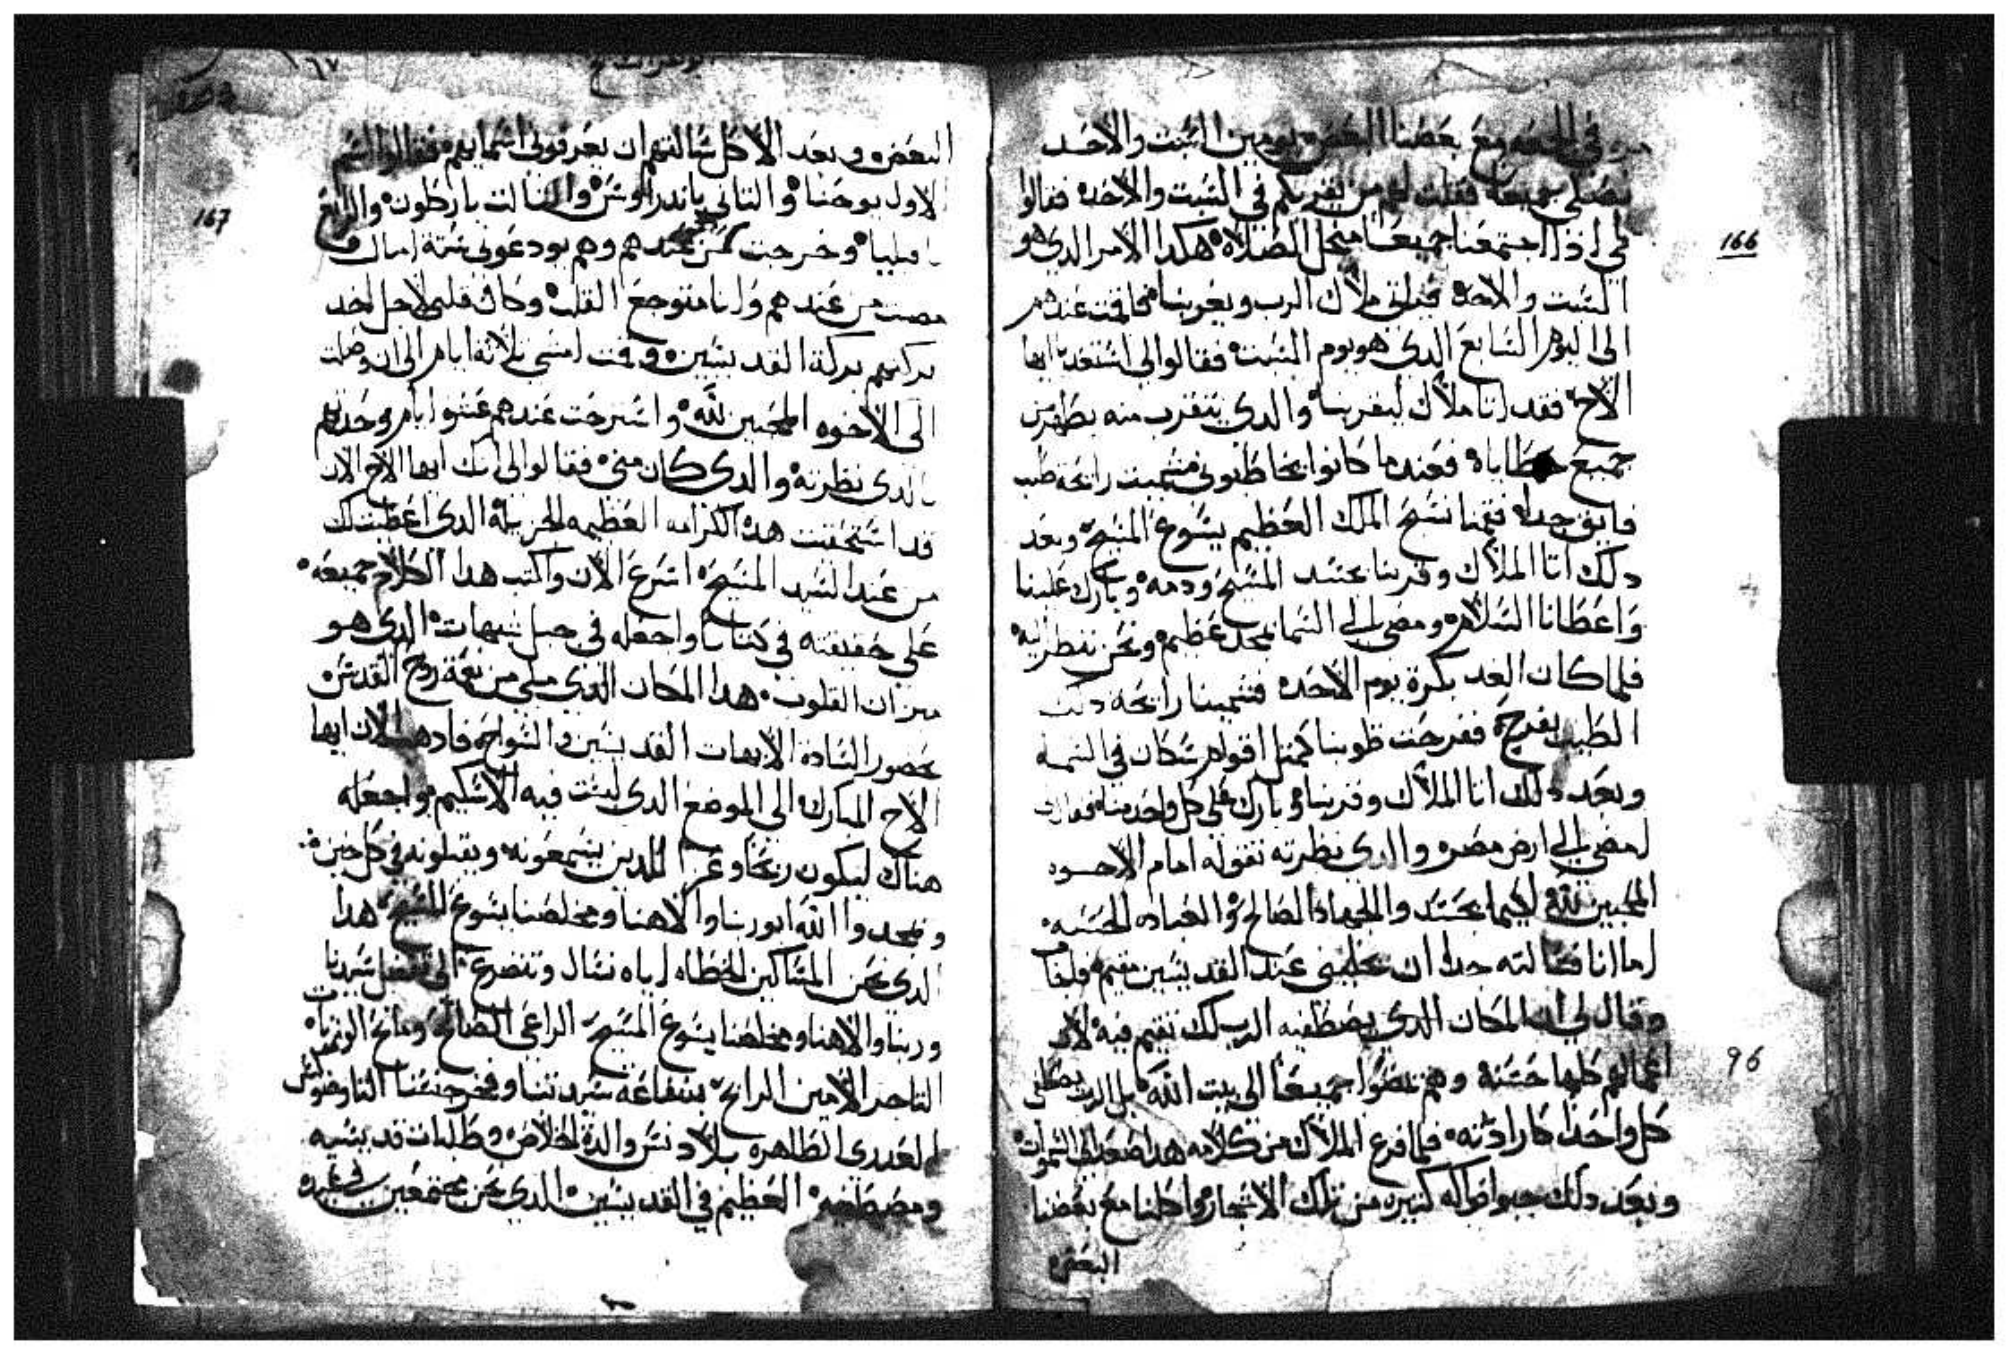 في الجمعه مع بعضنا البعض يومين السبت والاحد
نصلي جميعا فقلت لهم من يقربكم في السبت والاحد فقالوا
لي اذا اجتمعنا جميعا منجل الصلاة هكدا الامر الدي هو
السبت والاحد فياتي ملاك الرب ويقربنا فاقمت عندهم
الى اليوم السابع الدي هو يوم السبت فقالوا لي استعد يا ايها
الاخ فقد اتا ملاك ليقربنا والدي يتقرب منه يطهر من
جميع خطاياه فعندما كانوا يخاطبوني فشميت رايحة طيب
فايق جدا فقمنا نسبح الملك العظيم يسوع المسيح وبعد
دلك اتا الملاك وقربنا جسد المسيح ودمه وبارك علينا
واعطانا السلام ومضى الى السما بمجد عظيم ونحن ننظر اليه
فلما كان الغد بكرة يوم الاحد فشمينا رايحة دلك
الطيب بفرح ففرحت قلوبنا كمثل اقوام سكان في السما
وبعد دلك اتا الملاك وقربنا وبارك على كل واحد منا فقال
امضي الى ارض مصر والدي نظرته تقوله امام الاخوه
المحبين لله لكيما والجهاد الصالح والعباده الحسنه
اما انا فسالته جدا ان يخليني عند القديسين مقيم
وقال لي ان المكان الدي يصطفيه الرب لك تقيم فيه لان
اعمالهم كلها حسنة وهم يمضوا جميعا الى بيت الله بل الرب يعطي
كل واحدا كارادته فلما فرغ الملاك من كلامه هدا صعد الى السموات
وبعد دلك جبوا فواكه كثيره من تلك الاشجار واكلنا مع بعضنا
البعض
166
96
١٦٧
167
البعض وبعد الاكل سالتهم ان يعرفوني اسمايهم فقالوا اسم
الاول يوحنا والتاني باندراوس والتالت باركلون والرابع
وخرجت من عندهم وهم يودعوني ستة اميال
مضيت من عندهم وانا متوجع القلب وكان قلبي لاجل اخد
بركتهم بركة القديسين وقمت امشي تلاتة ايام الى ان وصلت
الى الاخوه المحبين لله واسترحت عندهم عشرة ايام وحدثتهم
بالدي نظرته والدي كان مني فقالوا لي انك ايها الاخ الان
قد استحقيت هده الكرامه العظيمه الجزيله الدي اعطيت لك
من عند السيد المسيح اسرع الان واكتب هدا الكلام جميعه
على حقيقته في كتاب واجعله في جبل شيهات الدي هو
ميزان القلوب هدا المكان الدي ملي من نعمة روح القدس
بحضور السادة الابهات القديسين والسواح فادهب الان ايها
الاخ المبارك الى الموضع الدي لبست فيه الاسكيم واجعله
هناك ليكون ربحا وعزا للدين يسمعونه ويقبلونه في كل حين
ومجدوا الله ابو ربنا والاهنا ومخلصنا يسوع المسيح هدا
الدي نحن المساكين الخطاه اياه نسال ونتضرع الى سيدنا
وربنا والاهنا ومخلصنا يسوع المسيح الراعي الصالح ومانح الوزنات
التاجر الامين الرابح بشفاعة سيدتنا وفخر جنسنا التاوضوكس
العدرى الطاهره بلا دنس والدة الخلاص وطلبات قديسيه
ومصطفيه العظيم في القديسين الدي نحن مجتمعين في عيده